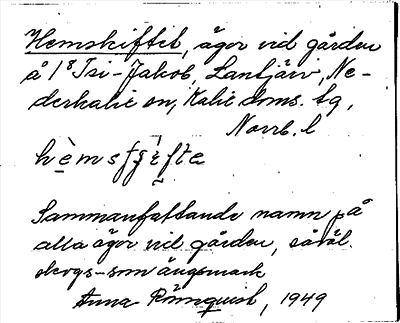 Hemskiftet, ägor vid gården
å 1⁸ Isi-Jakob, Lantjärv, Ne-
derkalix sn, Kalix doms. tg,
Norrb. l
Sammanfattande namn på
alla ägor vid gården, såväl
skogs- som ängsmark
Anna Rönnquist, 1949